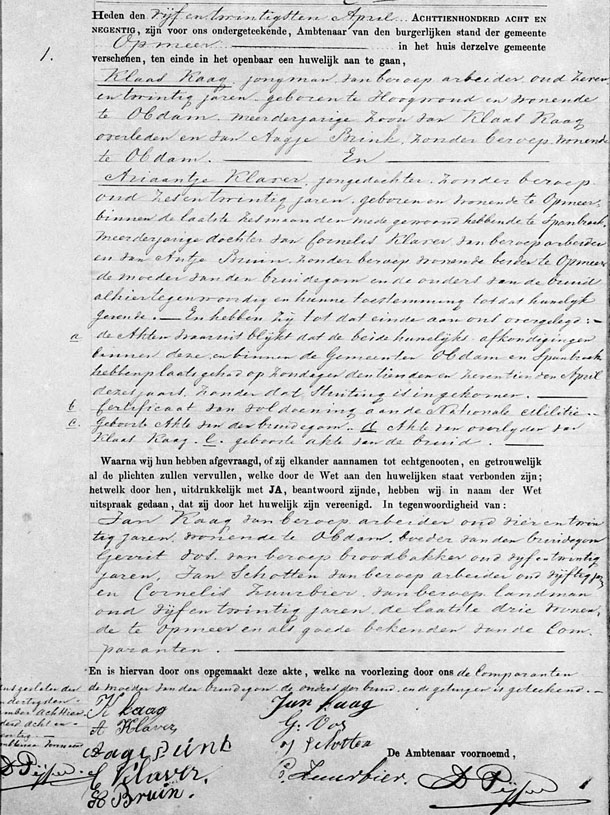 Heden den vijf en twintigsten April ACHTTIENHONDERD ACHT EN
NEGENTIG, zijn voor ons ondergeteekende, Ambtenaar van den burgerlijken stand der gemeente
Opmeer in het huis derzelve gemeente
1. verschenen, ten einde in het openbaar een huwelijk aan te gaan,
Klaas Kaag, jongman, van beroep arbeider, oud zeven
en twintig jaren, geboren te Hoogwoud en wonende
te Obdam, meerderjarige zoon van Klaas Kaag
overleden en van Aagje Brink, zonder beroep, wonende
te Obdam. En
Ariaantje Klaver, jongedochter, zonder beroep
oud zes en twintig jaren, geboren en wonende te Opmeer,
binnen de laatste zes maanden mede gewoond hebbende te Spanbroek,
meerderjarige dochter van Cornelis Klaver, van beroep arbeider
en van Antje Bruin, zonder beroep, wonende beiden te Opmeer
de moeder van den bruidegom en de ouders van de bruid
alhier tegenwoordig en hunne toestemming tot dat huwelijk
gevende. — En hebben zij tot dat einde aan ons overgelegd: —
a de Akten waaruit blijkt dat de beide huwelijks afkondigingen
binnen deze en binnen de Gemeenten Obdam en Spanbroek
hebben plaats gehad op Zondagen den tienden en zeventienden April
dezes jaars, zonder dat stuiting is ingekomen.
b Certificaat van voldoening aan de Nationale Militie.
c. Geboorte Akte van den bruidegom. d Akte van overlijden van
Klaas Kaag. e. geboorte akte van de bruid.
Waarna wij hun hebben afgevraagd, of zij elkander aannamen tot echtgenooten, en getrouwelijk
al de plichten zullen vervullen, welke door de Wet aan den huwelijken staat verbonden zijn;
hetwelk door hen, uitdrukkelijk met JA, beantwoord zijnde, hebben wij in naam der Wet
uitspraak gedaan, dat zij door het huwelijk zijn vereenigd. In tegenwoordigheid van:
Jan Kaag van beroep arbeider oud vier en twin
tig jaren, wonende te Obdam, broeder van den bruidegom
Gerrit Vos, van beroep broodbakker oud vijf en twintig
jaren, Jan Schotten van beroep arbeider oud vijftig jaren
en Cornelis Zuurbier, van beroep landman
oud vijf en twintig jaren, de laatste drie wonen
de te Opmeer en als goede bekenden van de Com
paranten.
En is hiervan door ons opgemaakt deze akte, welke na voorlezing door ons de Comparanten
de moeder van den bruidegom, de ouders der bruid, en de getuigen is geteekend
K Kaag
Jan kaag
A Klaver
G. Vos
Aagje Brink
J Schoten
C Klaver.
C. Zuurbier.
A Bruin.
De Ambtenaar voornoemd,